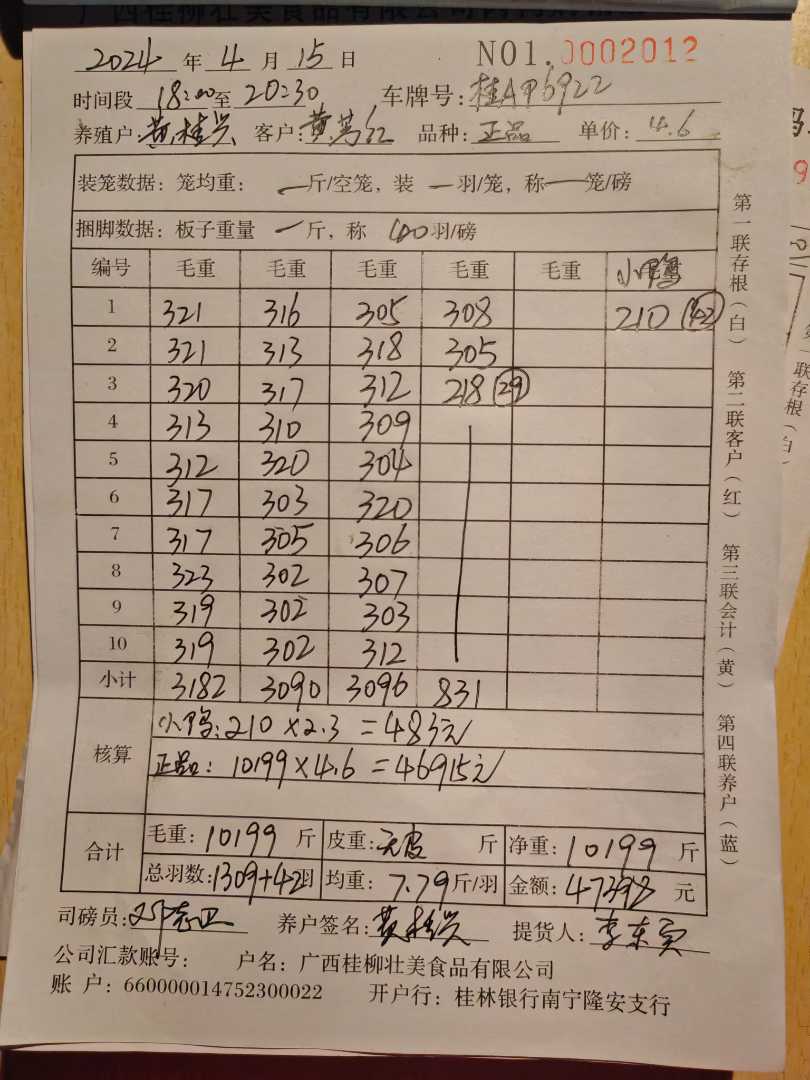 2024 年 4 月 15 日 NO1.0002012
时间段 18:00 至 20:30 车牌号:桂AP6922
养殖户:黄桂兴 客户:黄 红 品种:正品 单价:4.6
装笼数据:笼均重: 一 斤/空笼,装 一 羽/笼,称 一 笼/磅
捆脚数据:板子重量 一 斤,称 40 羽/磅
编号 毛重 毛重 毛重 毛重 毛重 小鸭
1 321 316 305 308 210 (42)
2 321 313 318 305
3 320 317 312 218 (29)
4 313 310 309
5 312 320 304
6 317 303 320
7 317 305 306
8 323 302 307
9 319 302 303
10 319 302 312
小计 3182 3090 3096 831
核算
小鸭:210×2.3=483元
正品:10199×4.6=46915元
合计
毛重:10199 斤 皮重:无皮 斤 净重:10199 斤
总羽数:1309+42羽 均重:7.79斤/羽 金额:47398 元
司磅员:邓志卫 养户签名:黄桂兴 提货人:李东
公司汇款账号: 户名:广西桂柳壮美食品有限公司
账 户:660000014752300022 开户行:桂林银行南宁隆安支行
第一联存根(白) 第二联客户(红) 第三联会计(黄) 第四联养户(蓝)